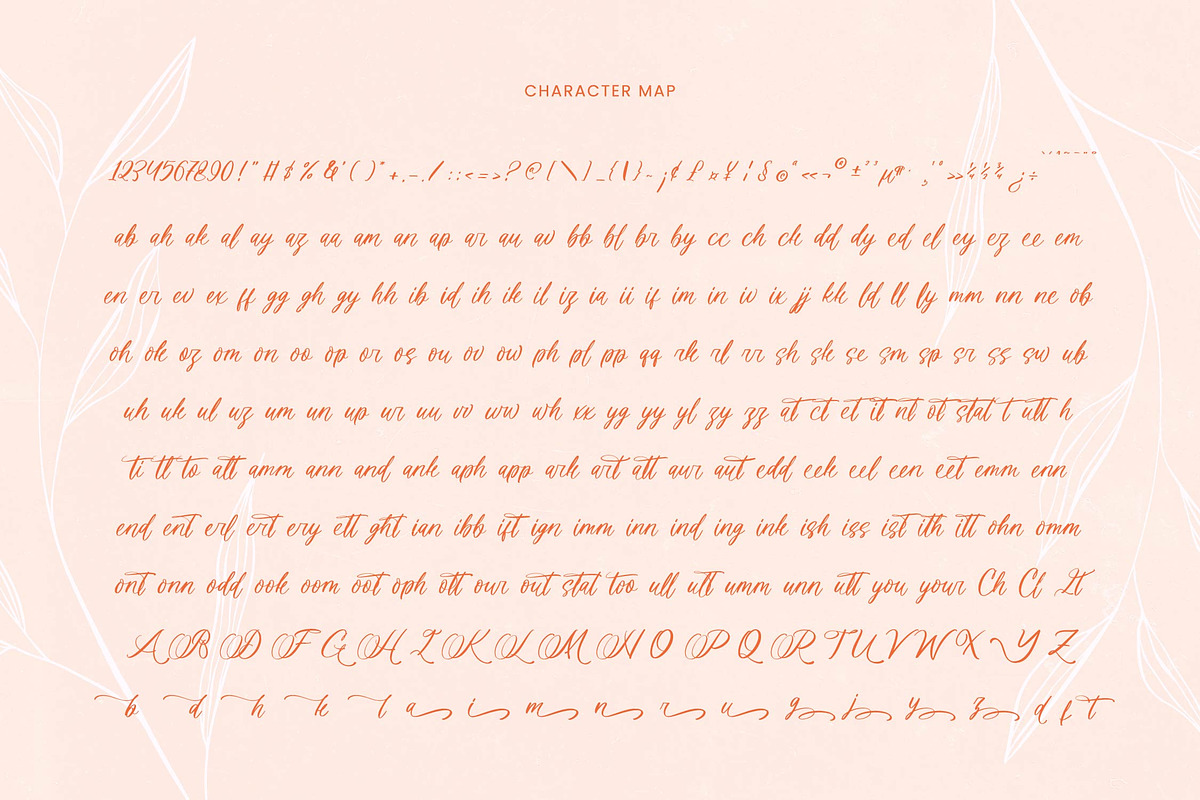 CHARACTER MAP
1234567890!" # $ % & ' ( ) * + , - . / : ; < = > ? @ [ \ ] _ { | } ~ ¡ ¢ £ ¤ ¥ ¦ § © ª « ¬ ® ± ² ³ µ ¶ · ¸ ¹ º » ¼ ½ ¾ ¿ ÷
ab ah ak al ay az aa am an ap ar au av bb bl br by cc ch ck dd dy ed el ey ez ee em
en er ev ex ff gg gh gy hh ib id ih ik il iz ia ii if im in iv ix jj kk ld ll ly mm nn ne ob
oh ok oz om on oo op or os ou ov ow ph pl pp qq rk rl rr sh sk se sm sp sr ss sw ub
uh uk ul uz um un up ur uu vv ww wh xx yg yy yl zy zz at ct et it nt ot stat t utt h
ti tt to att amm ann and ank aph app ark art att aur aut edd eek eel een eet emm enn
end ent erl ert ery ett ght ian ibb ift ign imm inn ind ing ink ish iss ist ith itt ohn omm
ont onn odd ook oom oot oph ott our out stat too ull ult umm unn utt you your Ch Cl Lt
A B D F G H I K L M N O P Q R T U V W X Y Z
b d h k l a i m n r u g j y z d f t